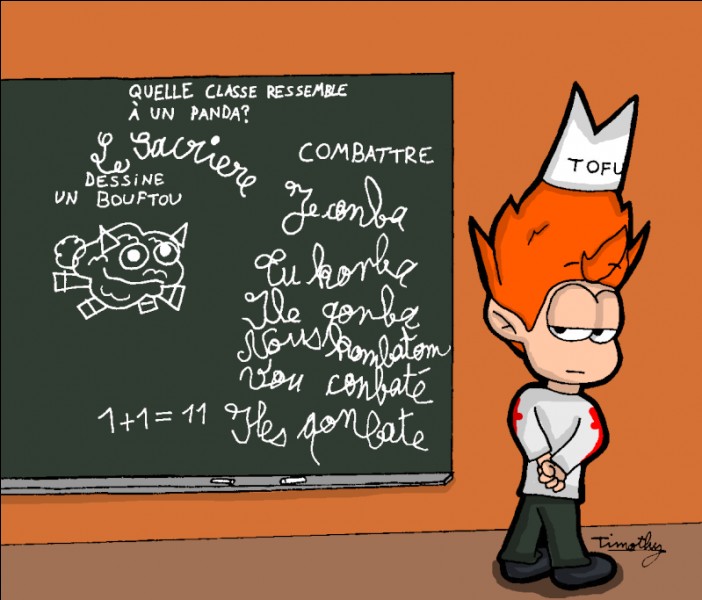 QUELLE CLASSE RESSEMBLE
À UN PANDA?
Le Sacriere
DESSINE
UN BOUFTOU
1+1=11
COMBATTRE
Je conba
Tu konba
Ile gonba
Nous kombatom
Vou conbaté
Iles gonbate
TOFU
Timothy